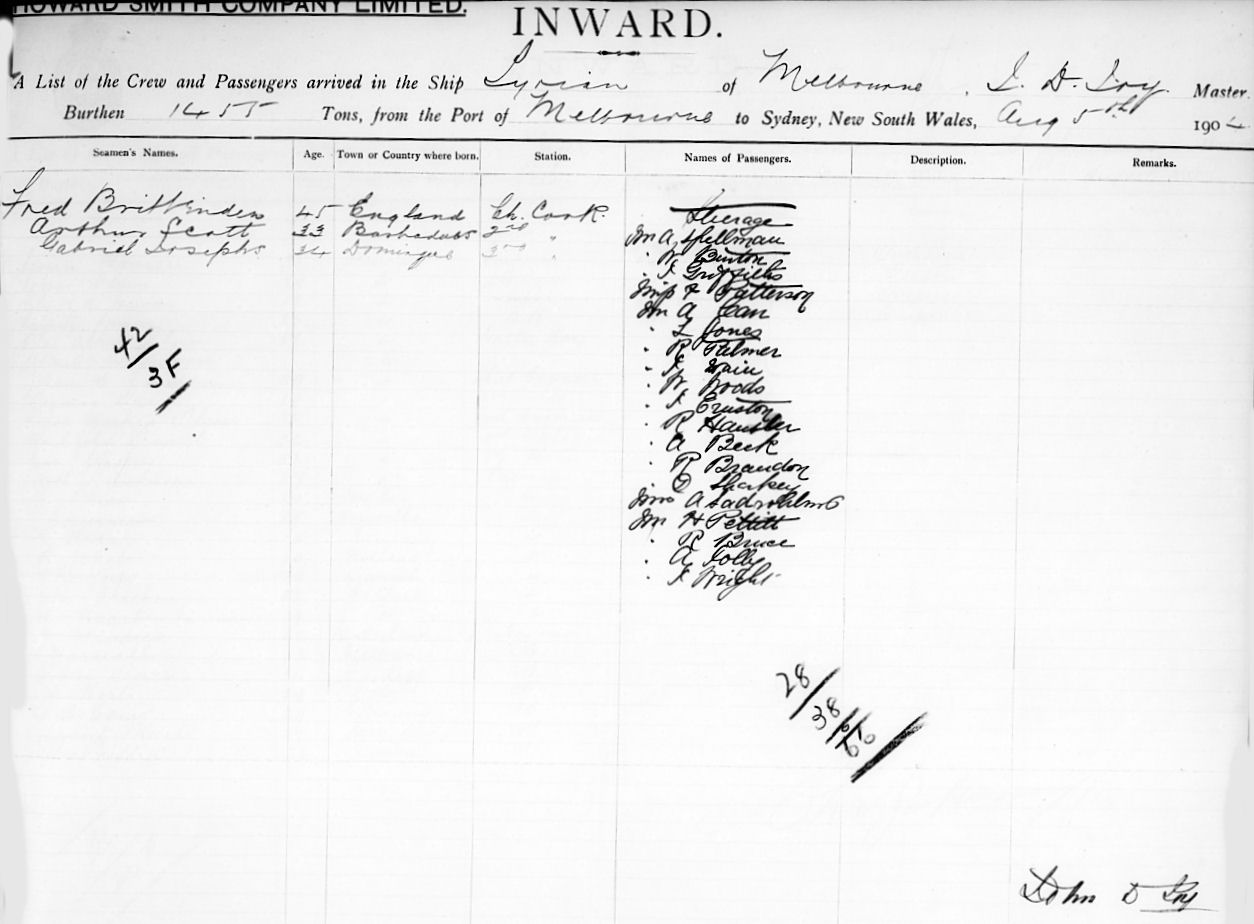 HOWARD SMITH COMPANY LIMITED.
INWARD.
A List of the Crew and Passengers arrived in the Ship Syrian of Melbourne, J. D. Joy. Master.
Burthen 1455 Tons, from the Port of Melbourne to Sydney, New South Wales, Aug 5th 1904
Seamen's Names. Age. Town or Country where born. Station. Names of Passengers. Description. Remarks.
Steerage
Fred Brittenden 45 England Ch. Cook.
Arthur Scott 33 Barbadoes 2nd "
Gabriel Josephs 34 Domingue 3rd "
Mr A Spellman
" W Burton
" J Griffiths
Patterson
Mr A Carr
" L Jones
" R Palmer
" J
" W Woods
" J
" R
" A Beck
" R Brandon
" O Sharkey
Mrs A
Mr H Pettitt
" R Bruce
" A Jolly
" J Wright
42/3F
28/38/66
John D Joy